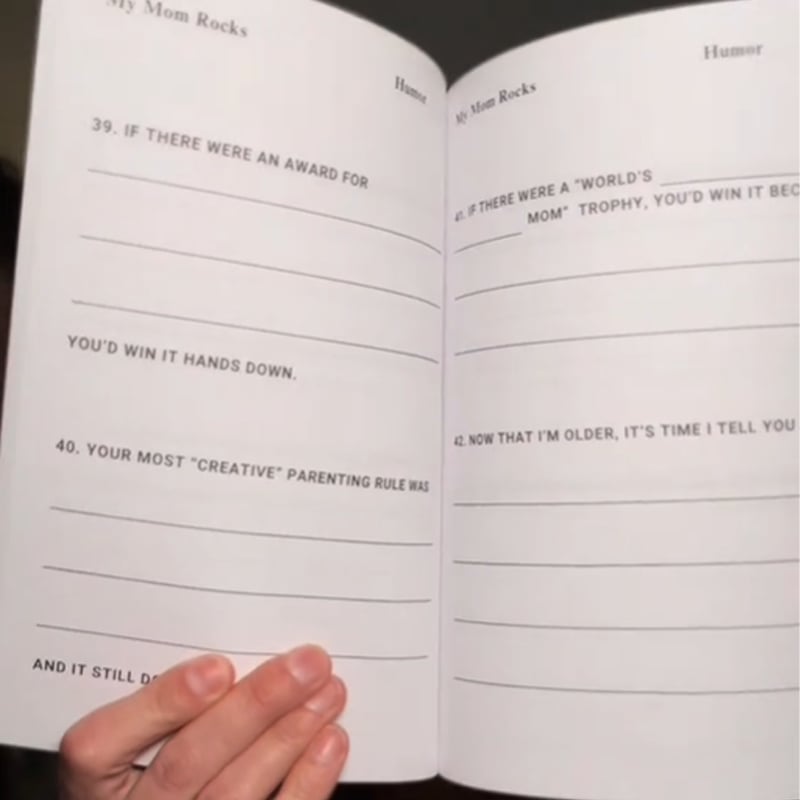 My Mom Rocks
Humor
39. IF THERE WERE AN AWARD FOR
YOU'D WIN IT HANDS DOWN.
40. YOUR MOST "CREATIVE" PARENTING RULE WAS
AND IT STILL
My Mom Rocks
Humor
41. IF THERE WERE A "WORLD'S
MOM" TROPHY, YOU'D WIN IT
42. NOW THAT I'M OLDER, IT'S TIME I TELL YOU